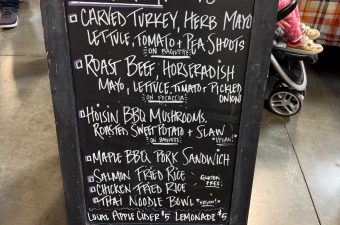 CARVED TURKEY, HERB MAYO
LETTUCE, TOMATO + PEA SHOOTS
ON BAGUETTE
ROAST BEEF, HORSERADISH
MAYO, LETTUCE, TOMATO + PICKLED
ONION
ON FOCACCIA
HOISIN BBQ MUSHROOMS,
ROASTED SWEET POTATO + SLAW
ON BAGUETTE *VEGAN!*
MAPLE BBQ PORK SANDWICH
SALMON FRIED RICE
CHICKEN FRIED RICE
GLUTEN FREE!
THAI NOODLE BOWL *VEGAN!*
LOCAL APPLE CIDER $5 LEMONADE $5